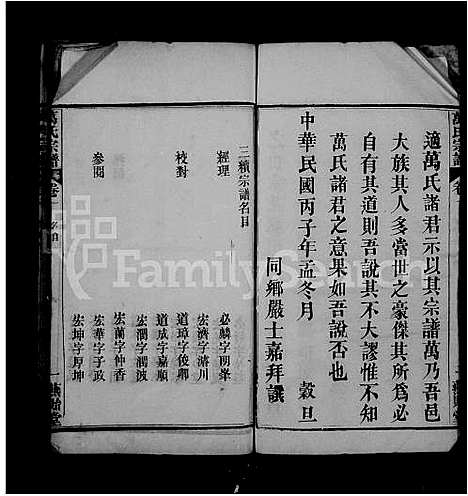 適萬氏諸君示以其宗譜萬乃吾邑
大族其人多當世之豪傑其所為必
自有其道則吾說其不大謬惟不知
萬氏諸君之意果如吾說否也
中華民國丙子年孟冬月 穀旦
同鄉嚴士嘉拜譔
萬氏宗譜
三續宗譜名目
經理
必麟字明峯
宏濟字濬川
校對
道璋字俊卿
道成字嘉順
宏潤字潤波
參閱
宏蘭字仲香
宏華字子政
宏坤字厚坤
FamilySearch